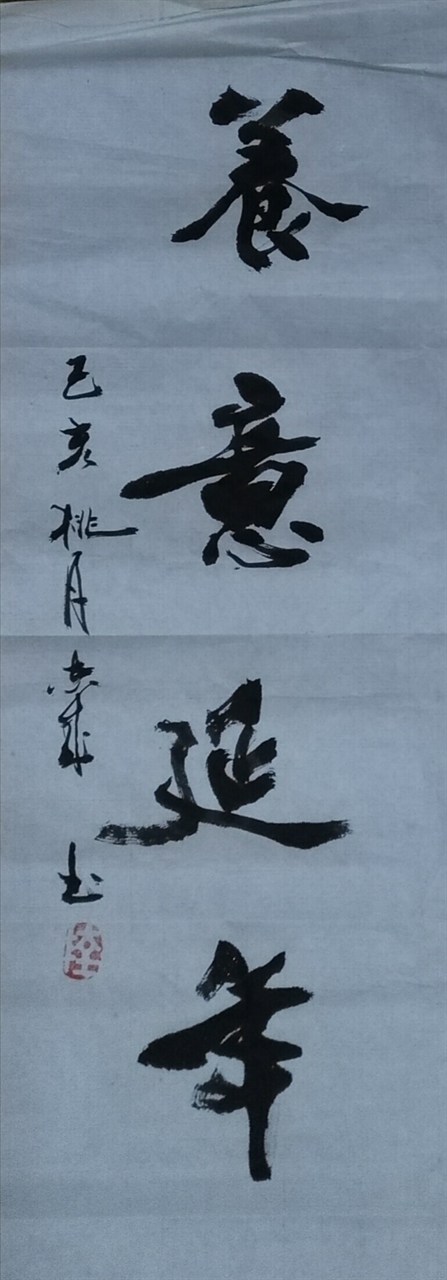 養意延年
己亥桃月
书